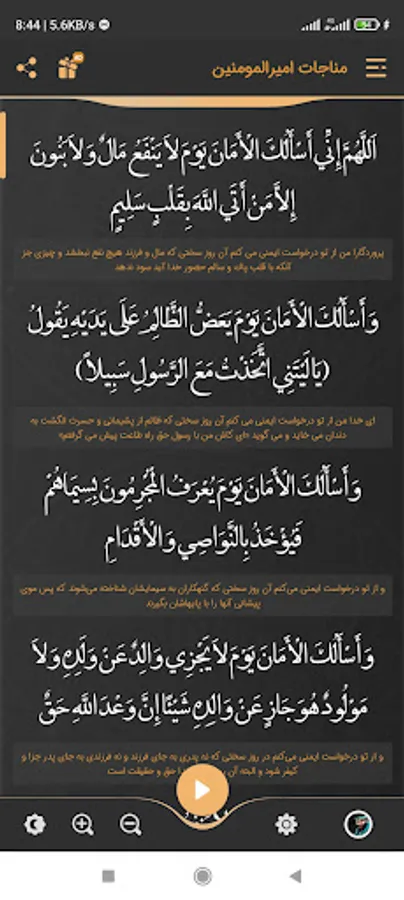 8:44 | 5.6KB/s
مناجات امیرالمومنین
اَللّٰهُمَّ إِنِّي أَسْأَلُكَ الْأَمَانَ يَوْمَ لاَ يَنْفَعُ مَالٌ وَلاَ بَنُونَ
إِلاَّ مَنْ أَتَي اللَّهَ بِقَلْبٍ سَلِيمٍ
پروردگارا من از تو درخواست ایمنی می کنم آن روز سختی که مال و فرزند هیچ نفع نبخشد و چیزی جز
آنکه با قلب پاک و سالم حضور خدا آید سود ندهد
وَأَسْأَلُكَ الْأَمَانَ يَوْمَ يَعَضُّ الظَّالِمُ عَلَي يَدَيْهِ يَقُولُ
(يَا لَيْتَنِي اتَّخَذْتُ مَعَ الرَّسُولِ سَبِيلاً)
ای خدا من از تو درخواست ایمنی می کنم آن روز سختی که ظالم از پشیمانی و حسرت انگشت به
دندان می خاید و می گوید «ای کاش من با رسول حق راه طاعت پیش می گرفتم»
وَأَسْأَلُكَ الْأَمَانَ يَوْمَ يُعْرَفُ الْمُجْرِمُونَ بِسِيمَاهُمْ
فَيُؤْخَذُ بِالنَّوَاصِي وَالْأَقْدَامِ
و از تو درخواست ایمنی می‌کنم آن روز سختی که گنهکاران به سیمایشان شناخته می‌شوند که پس موی
پیشانی آنها را با پاهاشان بگیرند
وَأَسْأَلُكَ الْأَمَانَ يَوْمَ لاَ يَجْزِي وَالِدٌ عَنْ وَلَدِهِ وَلاَ
مَوْلُودٌ هُوَ جَازٍ عَنْ وَالِدِهِ شَيْئًا إِنَّ وَعْدَ اللَّهِ حَقٌّ
و از تو درخواست ایمنی می‌کنم در روز سختی که نه پدری به جای فرزند و نه فرزندی به جای پدر جزا و
کیفر شود و البته آن حق و حقیقت است